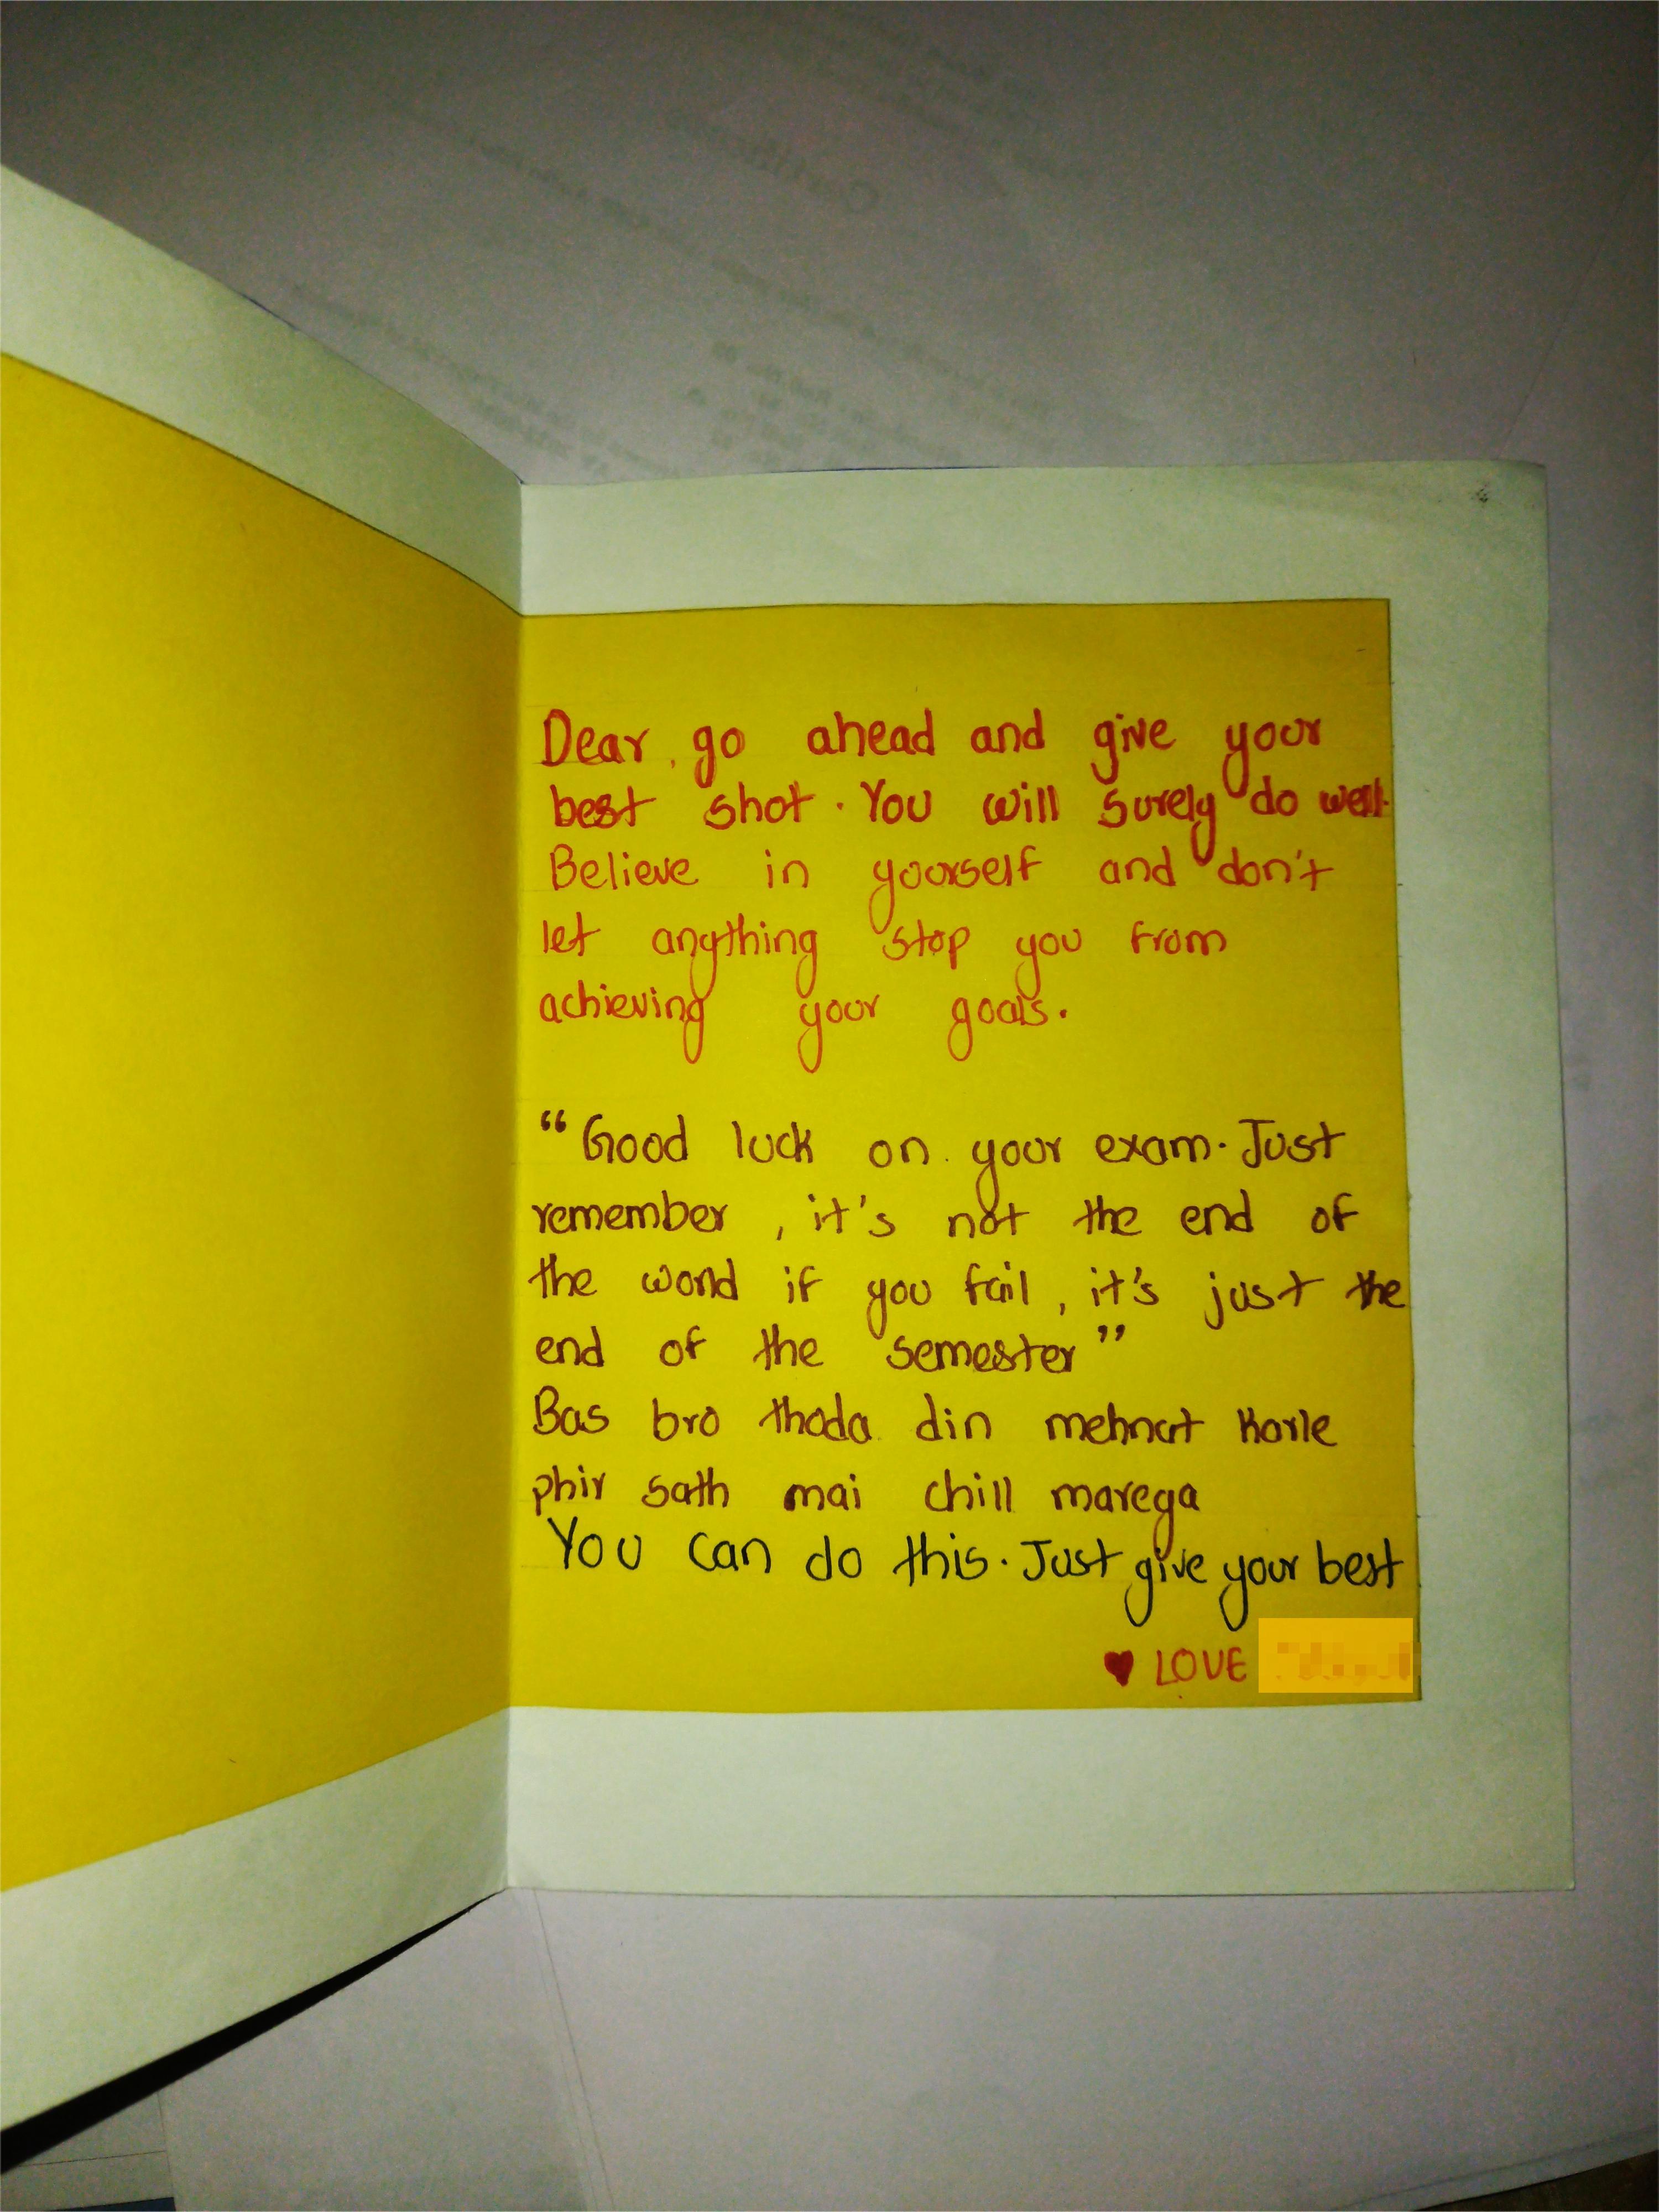 Dear, go ahead and give your
best shot. You will surely do well.
Believe in yourself and don't
let anything stop you from
achieving your goals.
“Good luck on your exam. Just
remember, it's not the end of
the world if you fail, it's just the
end of the semester”
Bas bro thoda din mehnat Karle
phir sath mai chill marega
You can do this. Just give your best
♥ LOVE